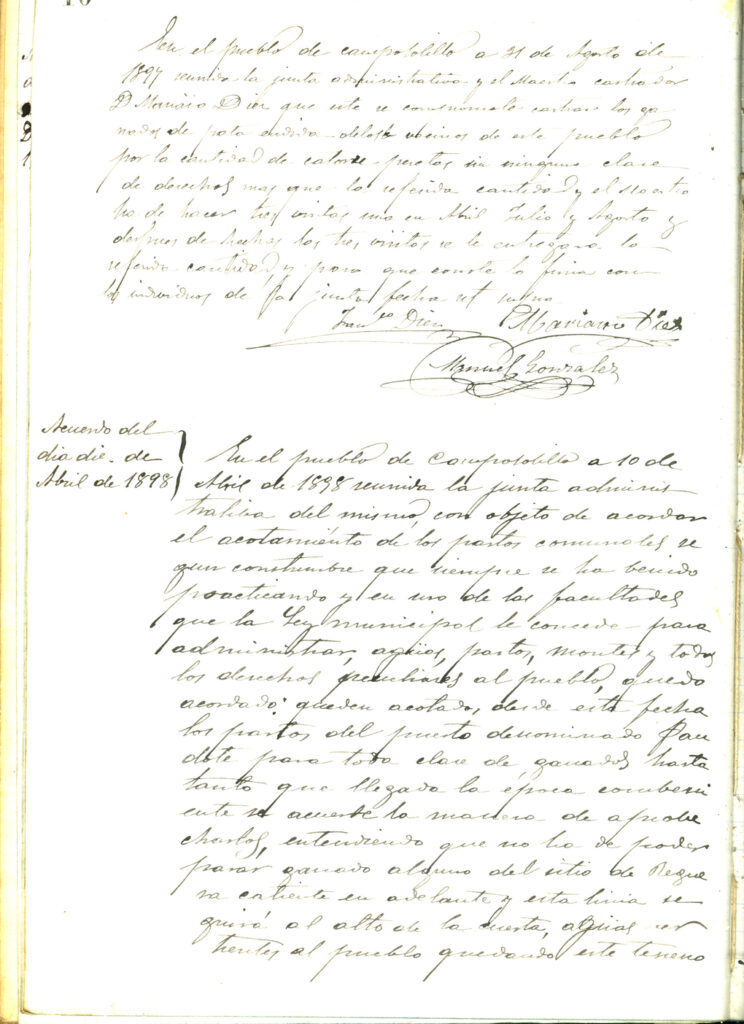 10
En el pueblo de campolillo a 31 de Agosto de
1897 reunida la junta administrativa y el Maestro castrador
D Mariano Diez que este se compromete castrar los ga
nados de pata endida de los vecinos de este pueblo
por la cantidad de catorce pesetas sin ninguna clase
de derechos mas que la referida cantidad y el Maestro
ha de hacer tres visitas una en Abril Julio y Agosto y
despues de hechas las tres visitas se le entregara la
referida cantidad, y para que conste lo firma con
los individuos de la junta fecha ut supra
Diez Mariano Diez
Manuel Gonzalez
Acuerdo del
dia diez de
Abril de 1898
En el pueblo de Camposolillo a 10 de
Abril de 1898 reunida la junta adminis
tratiba del mismo, con objeto de acordar
el acotamiento de los pastos comunales se
gun constumbre que siempre se ha benido
practicando y en uso de las facultades
que la Ley municipal le concede para
administrar, aguas, pastos, montes y todos
los derechos peculiares al pueblo, quedo
acordado queden acotados, desde esta fecha
los pastos del puerto denominado
para toda clase de ganados hasta
tanto que llegada la época combeni
ente se acuerde la manera de aprobe
charlos, entendiendo que no ha de poder
pasar ganado alguno del sitio de Regue
ra caliente en adelante y esta linia se
guirá al alto de la cuesta, aguas ver
tientes al pueblo quedando este terreno